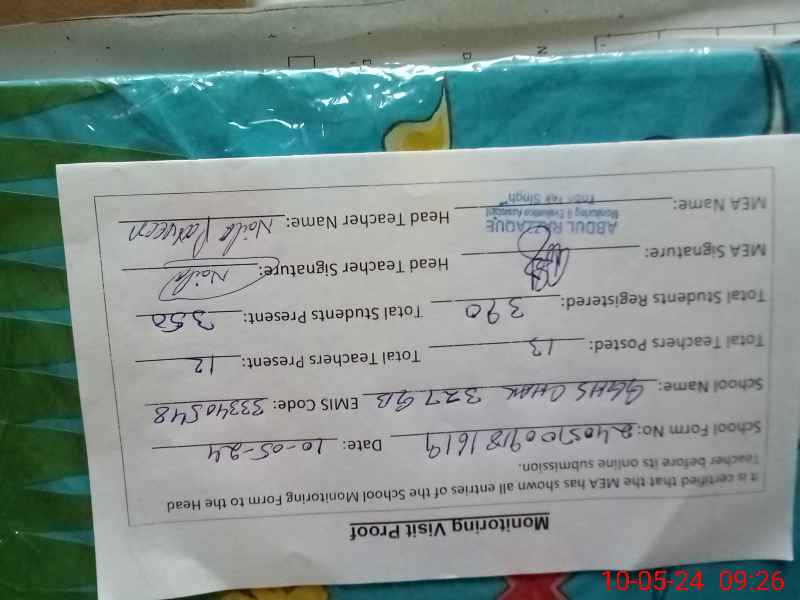 Monitoring Visit Proof
It is certified that the MEA has shown all entries of the School Monitoring Form to the Head
Teacher before its online submission.
School Form No: 240510091816 19 Date: 10-05-24
School Name: GGHS CHAK 327 GB EMIS Code: 33340548
Total Teachers Posted: 13 Total Teachers Present: 12
Total Students Registered: 390 Total Students Present: 350
MEA Signature: Head Teacher Signature: Naila
ABDUL RAZZAQUE
Monitoring & Evaluation Assistant
Toba Tek Singh
MEA Name: Head Teacher Name: Naila Parveen
10-05-24 09:26